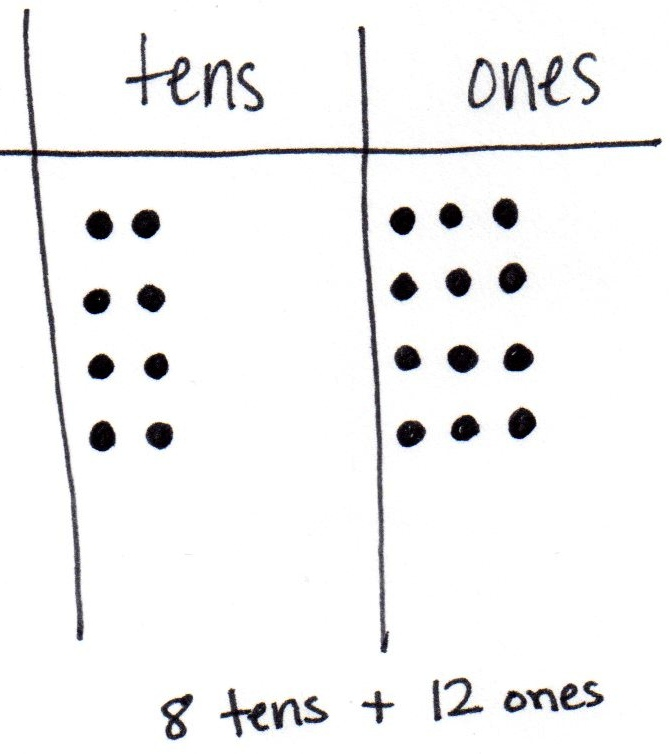 tens ones
8 tens + 12 ones